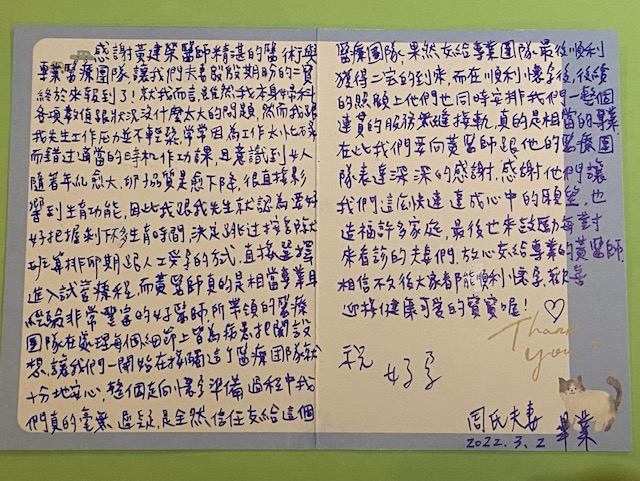 感謝黃建榮醫師精湛的醫術與
專業醫療團隊,讓我們夫妻殷殷期盼的二寶
終於來報到了!就我而言,雖然我本身婦科
各項數值跟狀況沒什麼太大的問題,然而我跟
我先生工作压力並不輕鬆,常常因為工作太忙碌
而錯过適當的時机作功課,且意識到女人
隨著年紀愈大,卵子品質是愈下降,很直接影
響到生育功能,因此我跟我先生就認為要好
好把握剩下的生育時間,決定跳过按部就
班等排卵期跟人工受孕的方式,直接選擇
進入試管療程,而黃醫師真的是相當專業且
經驗非常豐富的好醫師,所帶領的醫療
團隊在處理每個細節上皆為病患把關設
想,讓我們一開始在接觸這个醫療團隊就
十分地安心,整個走向懷孕準備過程中我
們真的毫無遲疑,是全然信任交給這個
醫療團隊,果然交給專業團隊最後順利
獲得二宝的到來,而在順利懷孕後,後續
的照顧上他們也同時安排我們一整個
連貫的服務無縫接軌,真的是相當的專業.
在此我們要向黃醫師跟他的醫療團
隊表達深深的感謝,感謝他們讓
我們這麼快速達成心中的願望,也
造福許多家庭,最後也來鼓勵每對
來看診的夫妻們,放心交給專業的黃醫師,
相信不久後大家都能順利懷孕,歡喜
迎接健康可愛的寶寶喔!
Thank
you
祝 好孕
周氏夫妻
2022.3.2 畢業